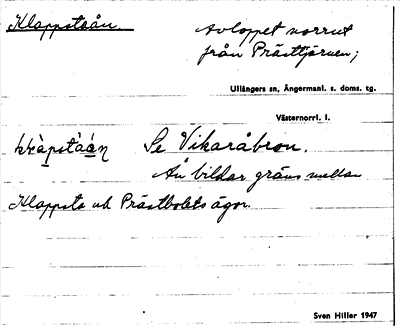 Klappstaån.
Avloppet norrut
från Prästtjärnen;
Ullångers sn, Ångermanl. s. doms. tg.
Västernorrl. l.
Se Vikaråbron.
Ån bildar gräns mellan
Klappsta och Prästbolets ägor.
Sven Hiller 1947